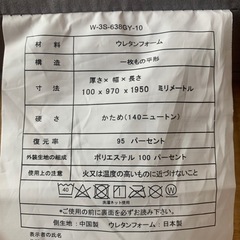 W-3S-638GY-10
材料 ウレタンフォーム
構造 一枚もの平形
厚さ×幅×長さ
寸法 100×970×1950 ミリメートル
硬さ かため(140ニュートン)
復元率 95 パーセント
外装生地の組成 ポリエステル 100 パーセント
使用上の注意 火又は温度の高いものに近づけないこと
40
洗濯ネット使用
※ご使用の前に裏面を必ずお読みください。
側生地:中国製 ウレタンフォーム:日本製
表示者の氏名